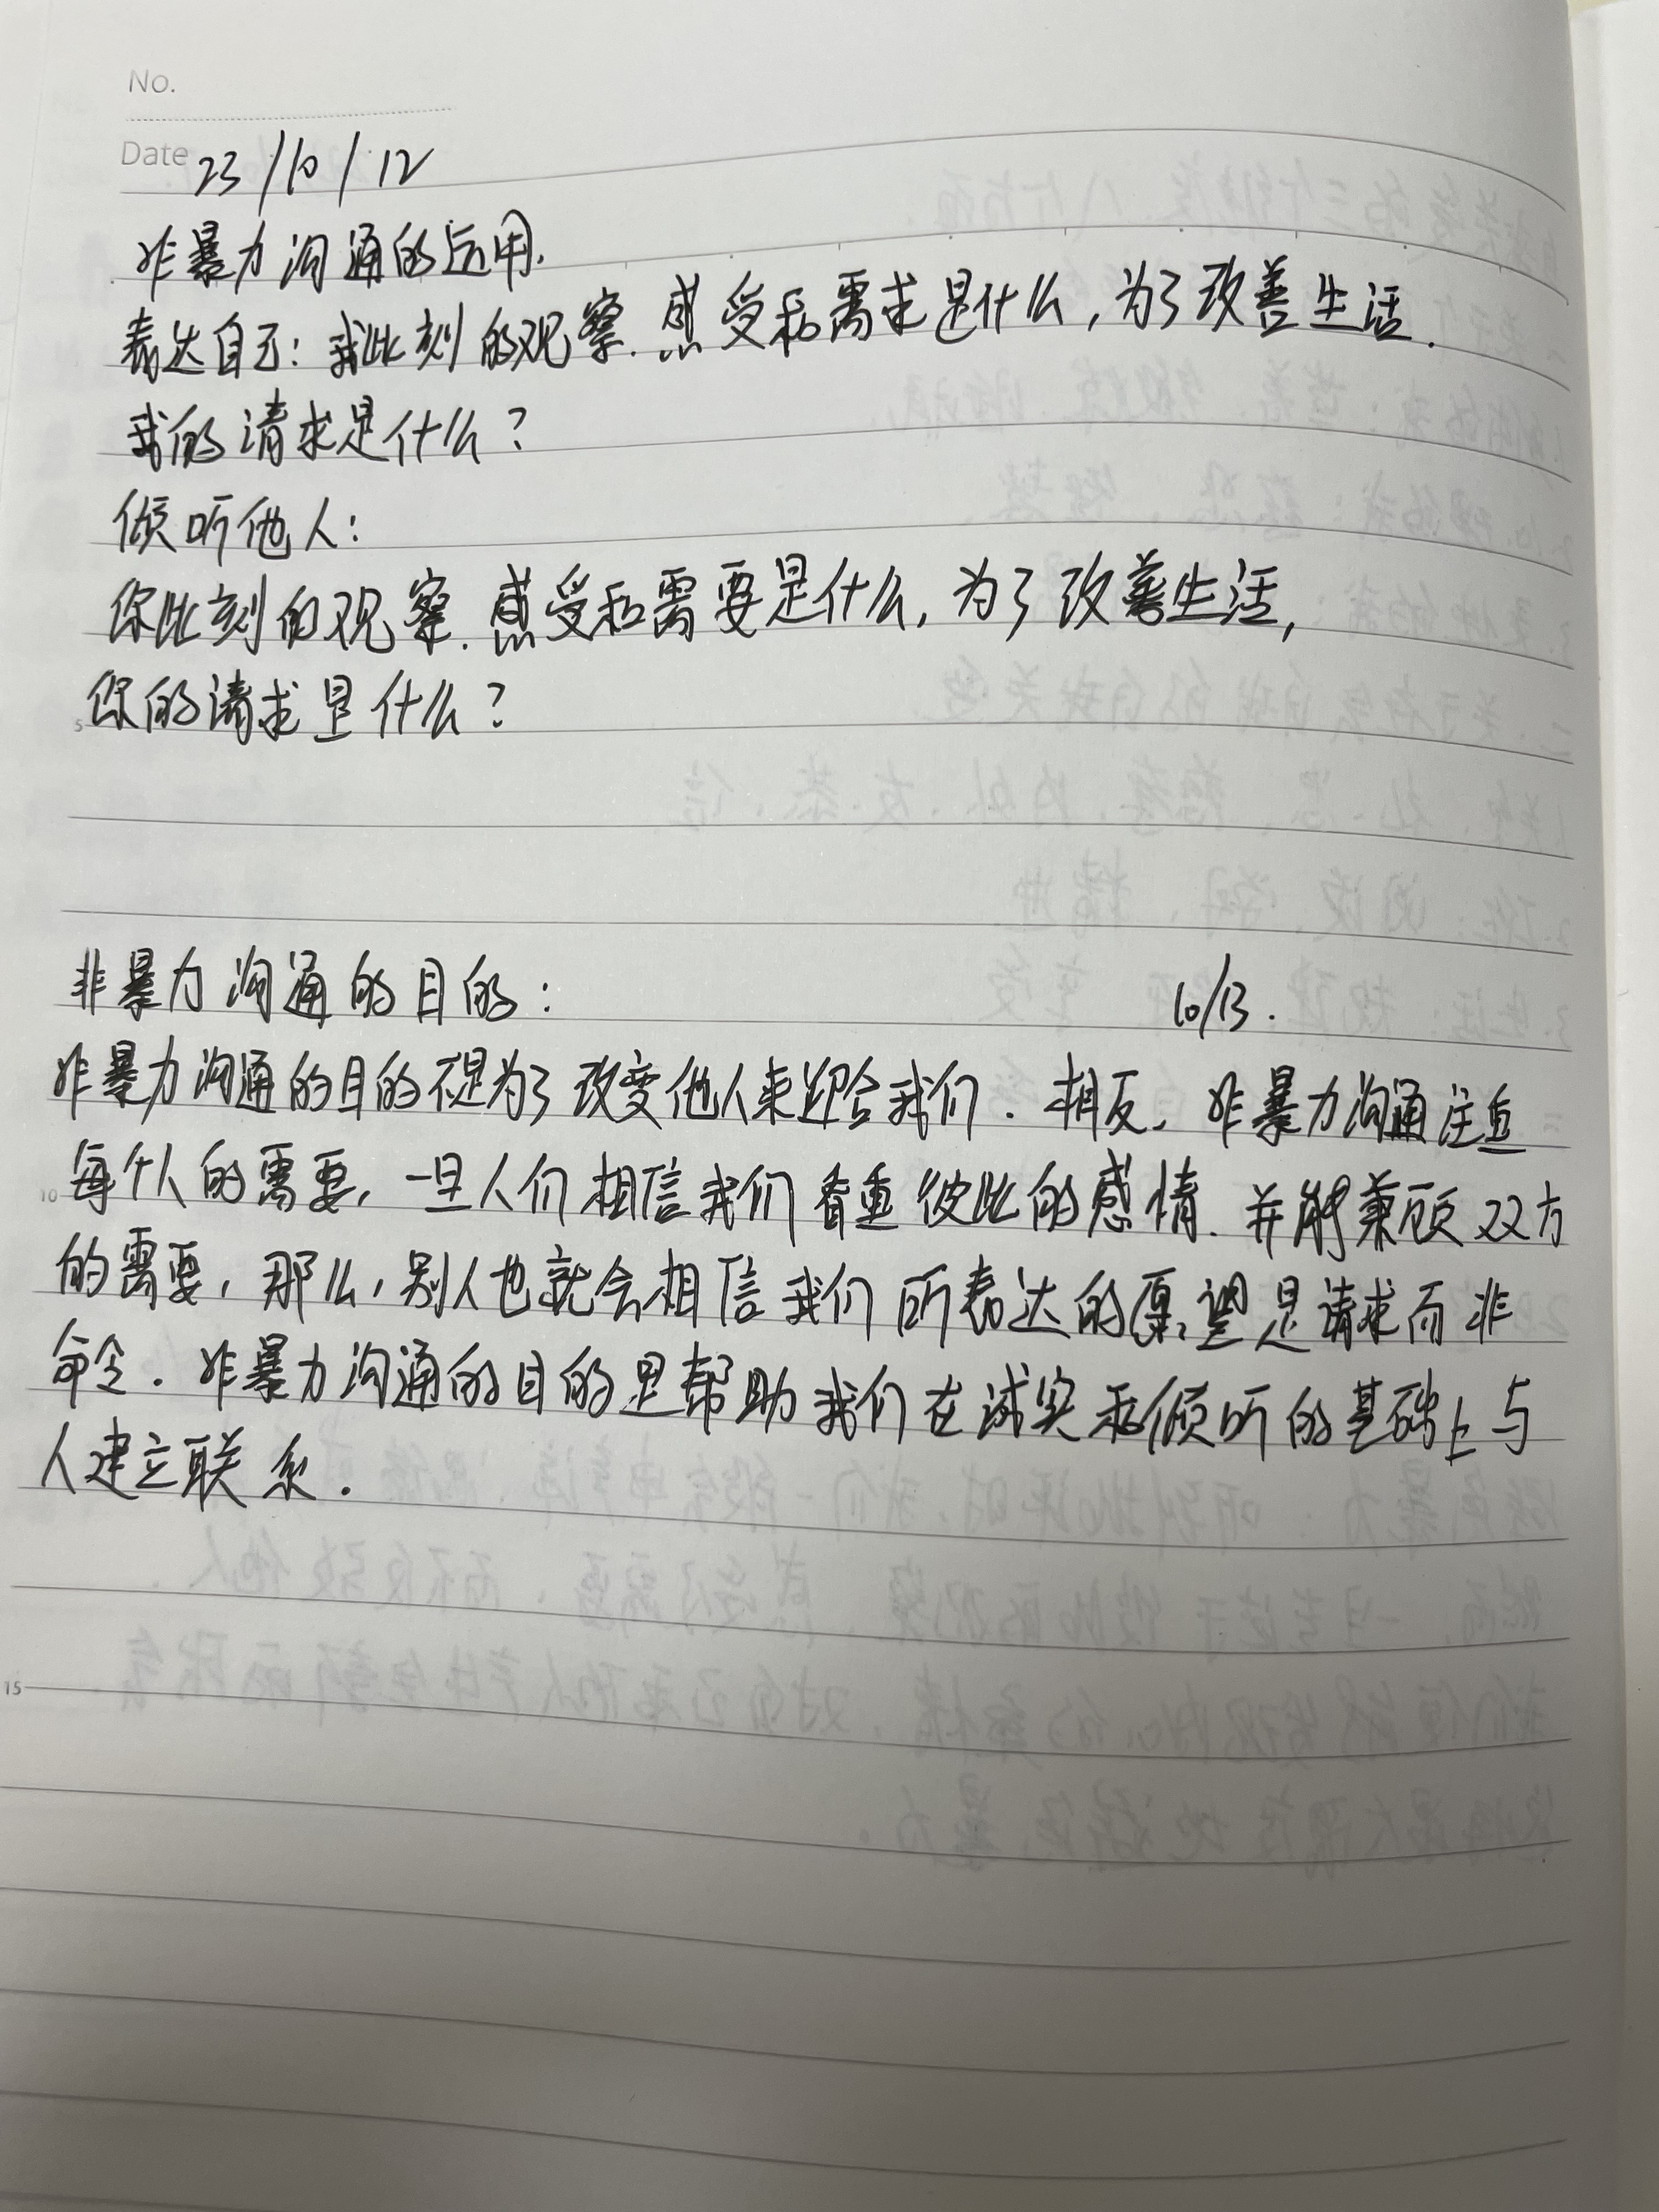 No.
Date 23/10/12
非暴力沟通的运用.
表达自己：我此刻的观察.感受和需求是什么,为了改善生活.
我的请求是什么？
倾听他人：
你此刻的观察.感受和需要是什么,为了改善生活,
你的请求是什么？
5
非暴力沟通的目的： 10/13.
非暴力沟通的目的不是为了改变他人来迎合我们.相反,非暴力沟通注重
10 每个人的需要,一旦人们相信我们看重彼此的感情.并能兼顾双方
的需要,那么,别人也就会相信我们所表达的愿望是请求而非
命令.非暴力沟通的目的是帮助我们在诚实和倾听的基础上与
人建立联系.
15